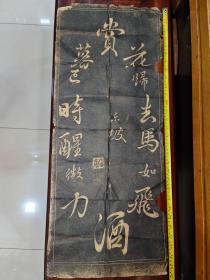 賞
花歸去馬如飛
酒
力微醒時已暮
東坡